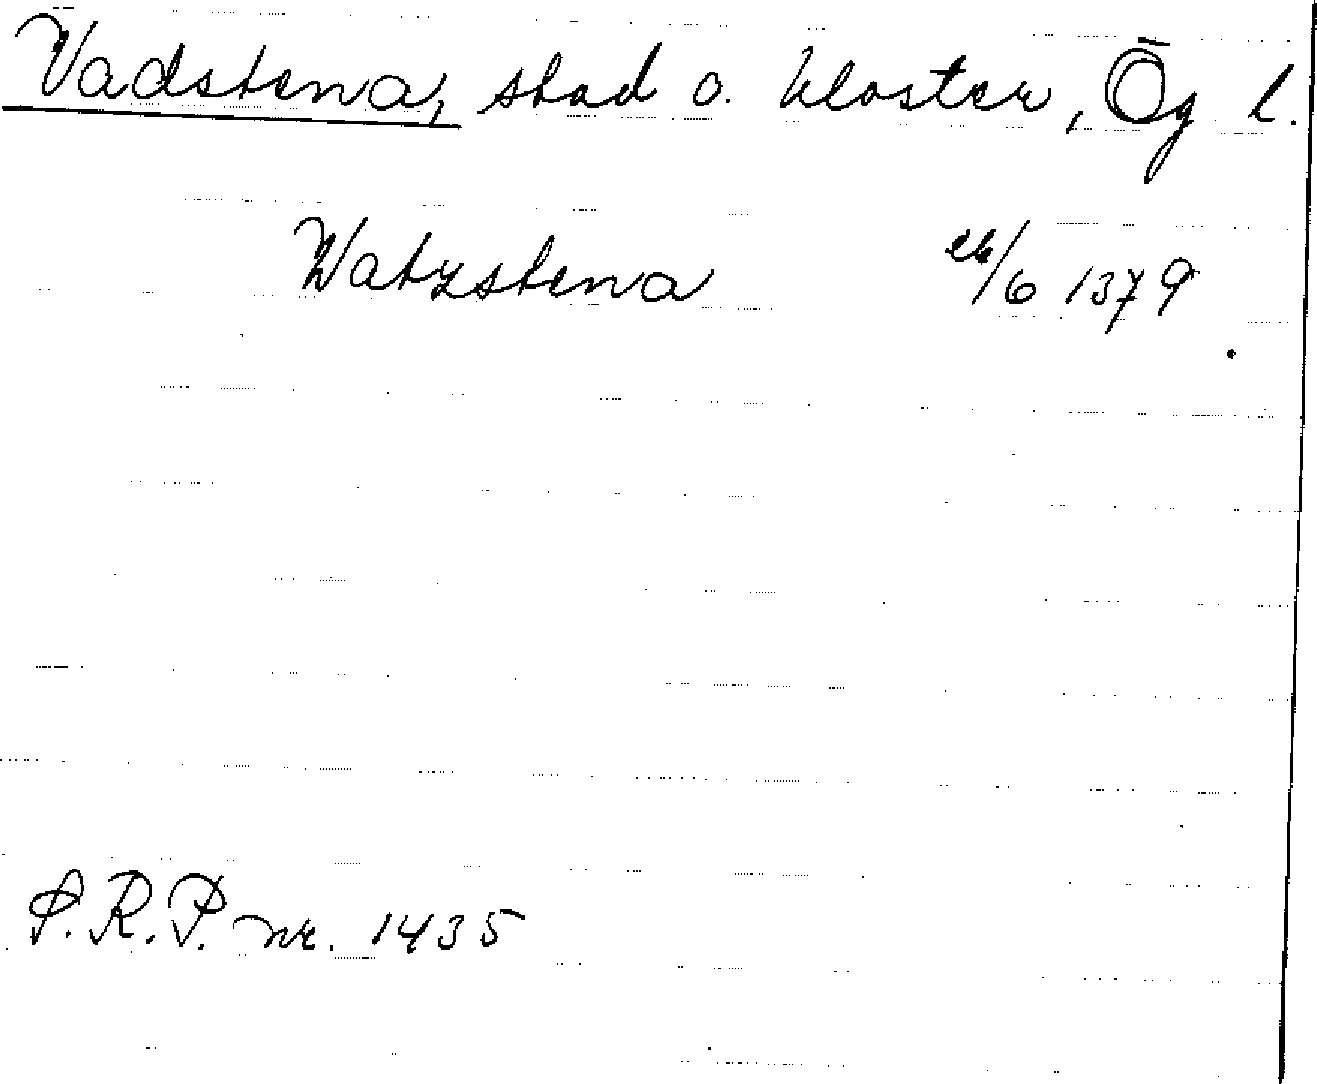 Vadstena, stad o. kloster, Ög l.
Watzstena 1379
S.R.P. nr. 1435